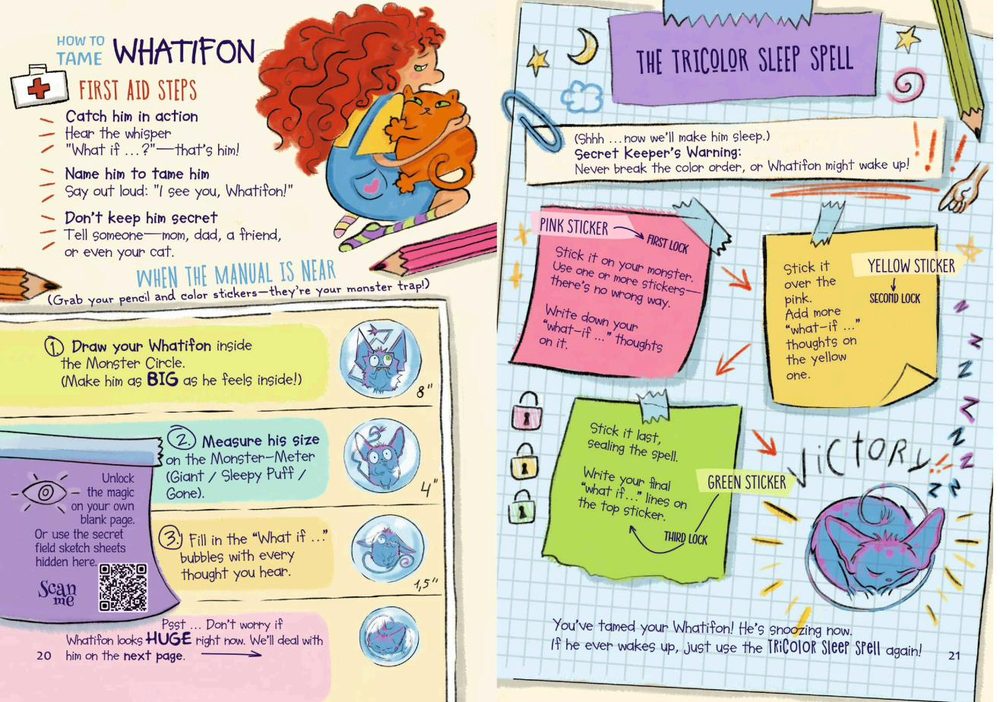 HOW TO
TAME WHATIFON
FIRST AID STEPS
Catch him in action
Hear the whisper
"What if ...?"—that's him!
Name him to tame him
Say out loud: "I see you, Whatifon!"
Don't keep him secret
Tell someone—mom, dad, a friend,
or even your cat.
WHEN THE MANUAL IS NEAR
(Grab your pencil and color stickers—they're your monster trap!)
1. Draw your Whatifon inside
the Monster Circle.
(Make him as BIG as he feels inside!)
8"
2. Measure his size
on the Monster-Meter
(Giant / Sleepy Puff /
Gone).
4"
3. Fill in the "What if ..."
bubbles with every
thought you hear.
1,5"
Unlock
the magic
on your own
blank page.
Or use the secret
field sketch sheets
hidden here.
Scan
me
Psst ... Don't worry if
Whatifon looks HUGE right now. We'll deal with
him on the next page.
20
THE TRICOLOR SLEEP SPELL
(Shhh ...now we'll make him sleep.)
Secret Keeper's Warning:
Never break the color order, or Whatifon might wake up!
!!
PINK STICKER
FIRST LOCK
Stick it on your monster.
Use one or more stickers—
there's no wrong way.
Write down your
"what-if ..." thoughts
on it.
YELLOW STICKER
SECOND LOCK
Stick it
over the
pink.
Add more
"what-if ..."
thoughts on
the yellow
one.
Stick it last,
sealing the spell.
Write your final
"what if..." lines on
the top sticker.
GREEN STICKER
THIRD LOCK
VICTORY!!
z z z z z z z z
You've tamed your Whatifon! He's snoozing now.
If he ever wakes up, just use the TRICOLOR SLEEP SPELL again!
21